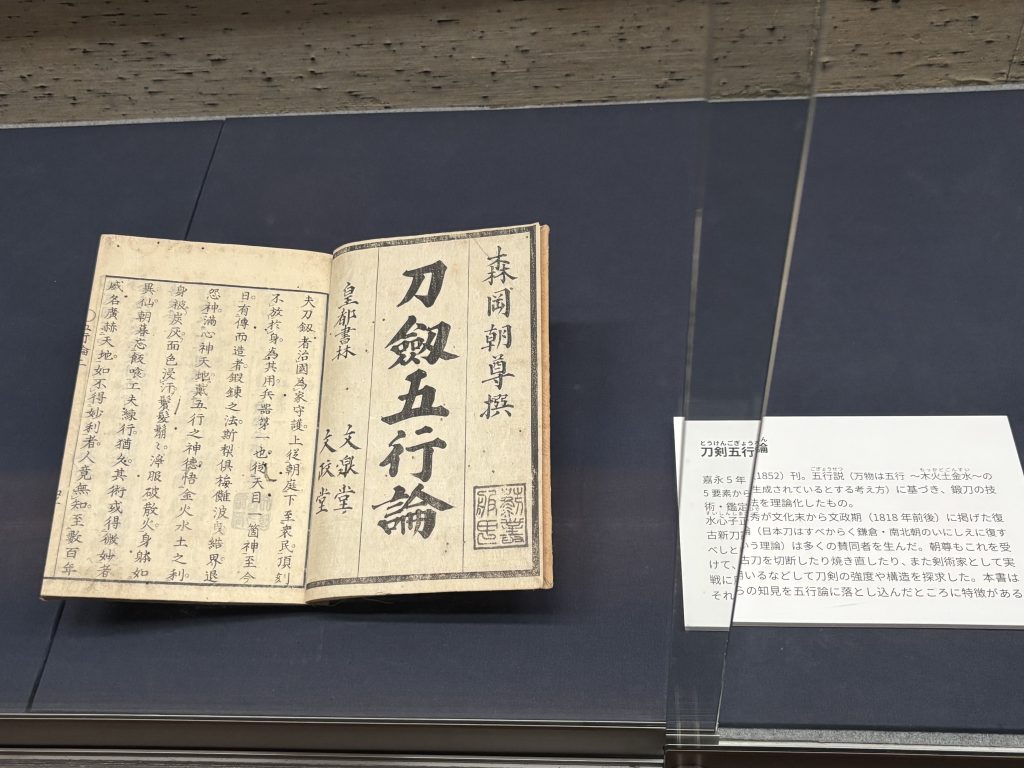 森岡朝尊撰
刀劔五行論
皇都書林
文泉堂
文政堂
夫刀劔者治國為家守護上従朝庭下至衆民頂刻
不放於身為其用兵器第一也徃天目一箇神至今
日有傳而造者鍛錬之法斯梨俱椿雖波曳結界退
怨神満心神天地蔵五行之神徳悟金火水土之利
身被炭灰面色浸汗鬚髮鬅々浄服破散火身躰如
異仙朝暮忘飯喰工夫練行猶久其術或得微妙者
威名廣赫天地如不得妙利者人竟無知至數百年
五行論
とうけんごぎょうろん
刀剣五行論
嘉永5年(1852)刊。五行説(万物は五行 ～木火土金水～の
ごぎょうせつ
もっかどごんすい
5要素から生成されているとする考え方)に基づき、鍛刀の技
術・鑑定法を理論化したもの。
すいしんしまさひで
水心子正秀が文化末から文政期(1818年前後)に掲げた復
古新刀論(日本刀はすべからく鎌倉・南北朝のいにしえに復す
べしという理論)は多くの賛同者を生んだ。朝尊もこれを受
けて、古刀を切断したり焼き直したり、また剣術家として実
戦に用いるなどして刀剣の強度や構造を探求した。本書は
それらの知見を五行論に落とし込んだところに特徴がある